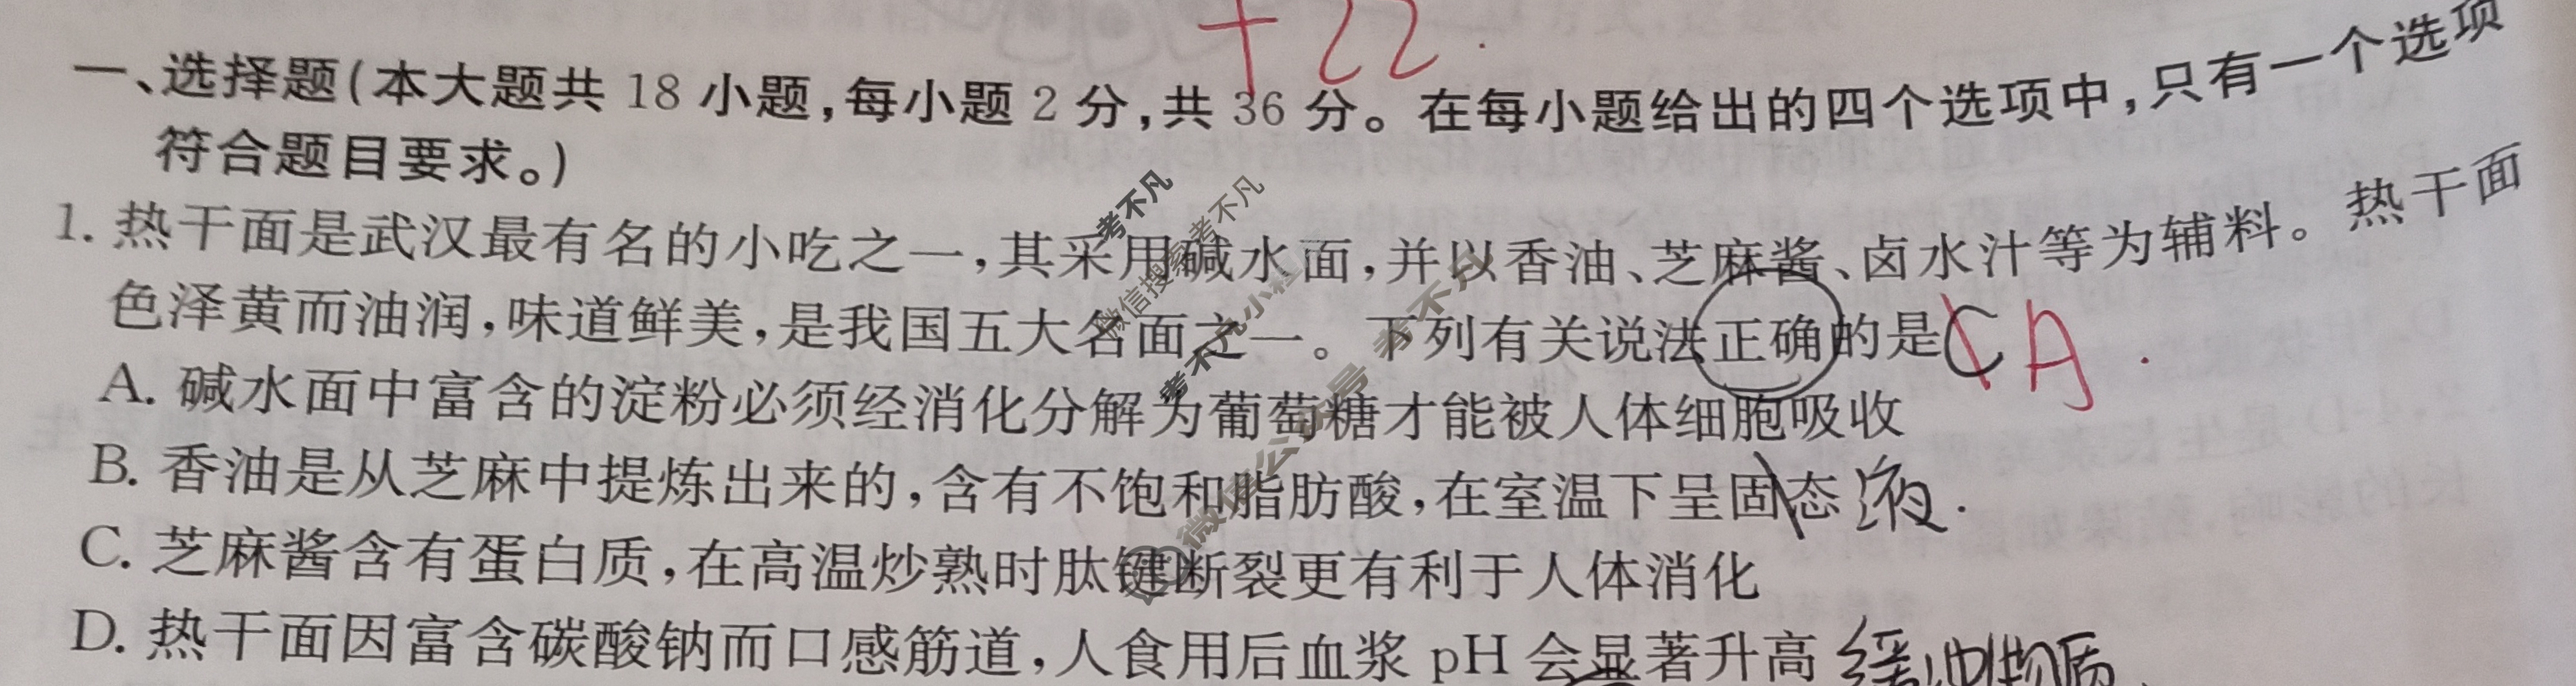 +22.
一、选择题(本大题共 18 小题,每小题 2 分,共 36 分。在每小题给出的四个选项中,只有一个选项
符合题目要求。)
1. 热干面是武汉最有名的小吃之一,其采用碱水面,并以香油、芝麻酱、卤水汁等为辅料。热干面
色泽黄而油润,味道鲜美,是我国五大名面之一。下列有关说法正确的是 C A.
A. 碱水面中富含的淀粉必须经消化分解为葡萄糖才能被人体细胞吸收
B. 香油是从芝麻中提炼出来的,含有不饱和脂肪酸,在室温下呈固态 液.
C. 芝麻酱含有蛋白质,在高温炒熟时肽键断裂更有利于人体消化
D. 热干面因富含碳酸钠而口感筋道,人食用后血浆 pH 会显著升高 缓冲物质.
考不凡
微信搜索考不凡
考不凡小程
微信公众号 考不凡